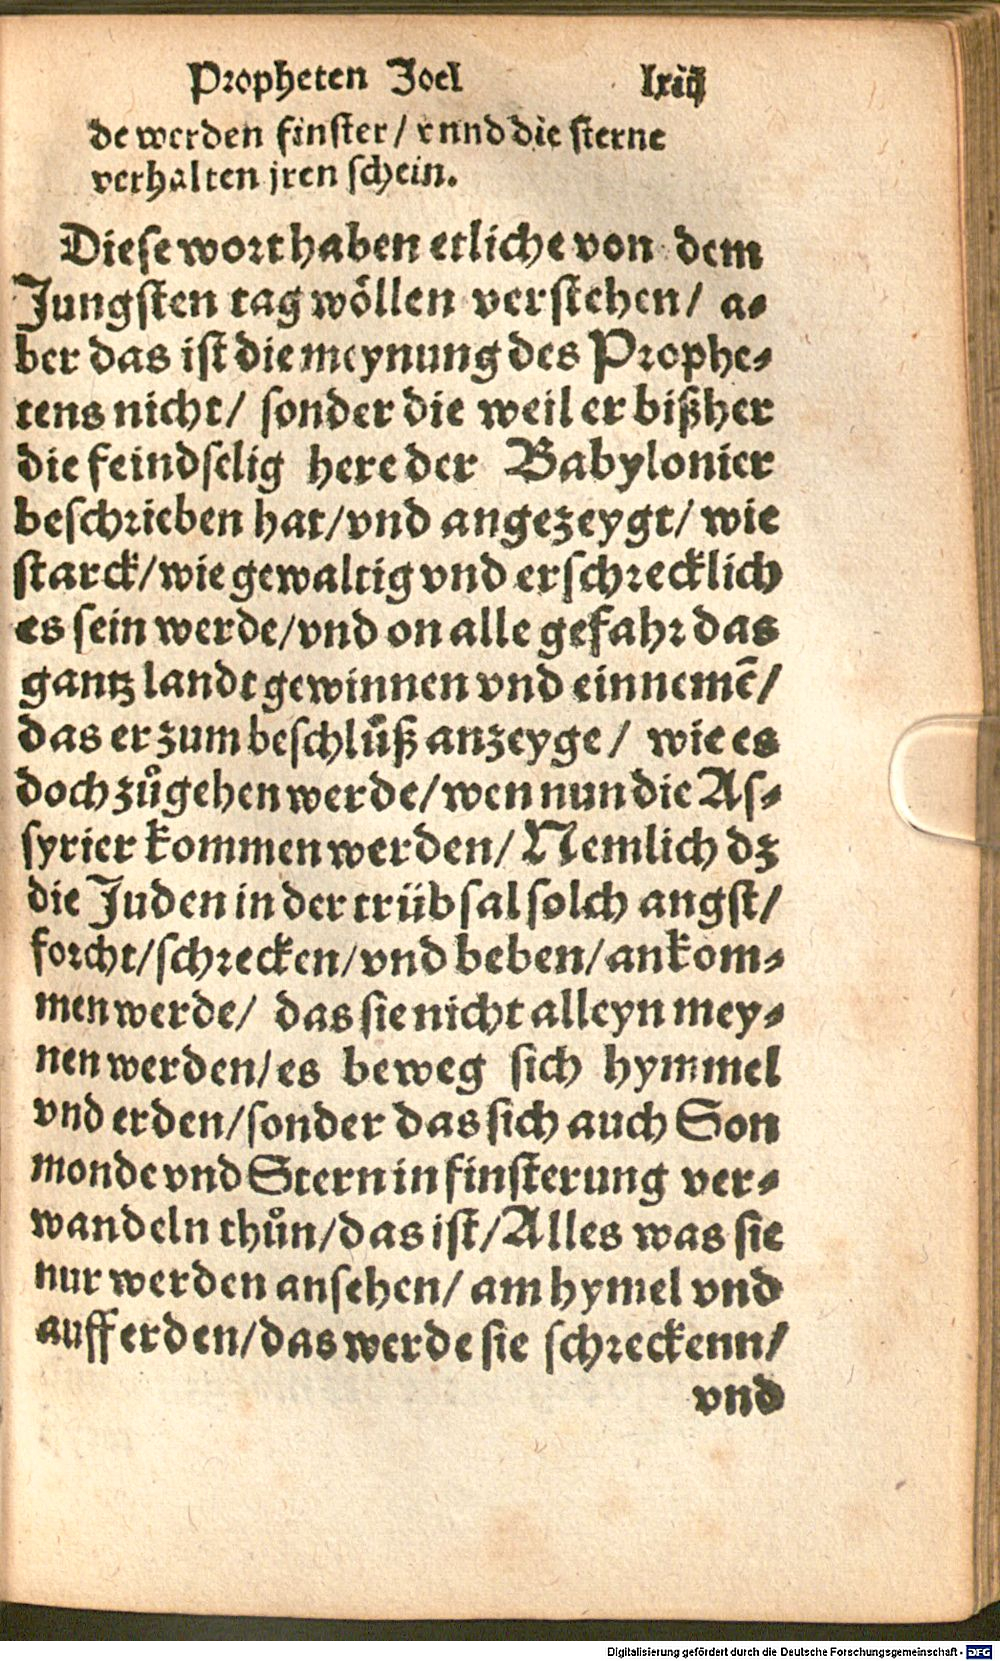 Propheten Joel lxiij
de werden finster/ vnnd die sterne
verhalten jren schein.
Diese wort haben etliche von dem
Jungsten tag wöllen verstehen/ a⸗
ber das ist die meynung des Prophe⸗
tens nicht/ sonder die weil er bißher
die feindselig here der Babylonier
beschrieben hat/vnd angezeygt/ wie
starck/wie gewaltig vnd erschrecklich
es sein werde/vnd on alle gefahr das
gantz landt gewinnen vnd einnemē/
das er zum beschlůß anzeyge/ wie es
doch zůgehen werde/wen nun die As⸗
syrier kommen werden/ Nemlich dz
die Juden in der trübsal solch angst/
forcht/schrecken/vnd beben/ankom⸗
men werde/ das sie nicht alleyn mey⸗
nen werden/es beweg sich hymmel
vnd erden/sonder das sich auch Son
monde vnd Stern in finsterung ver⸗
wandeln thůn/das ist/Alles was sie
nur werden ansehen/ am hymel vnd
auff erden/das werde sie schreckenn/
vnd
Digitalisierung gefördert durch die Deutsche Forschungsgemeinschaft - DFG